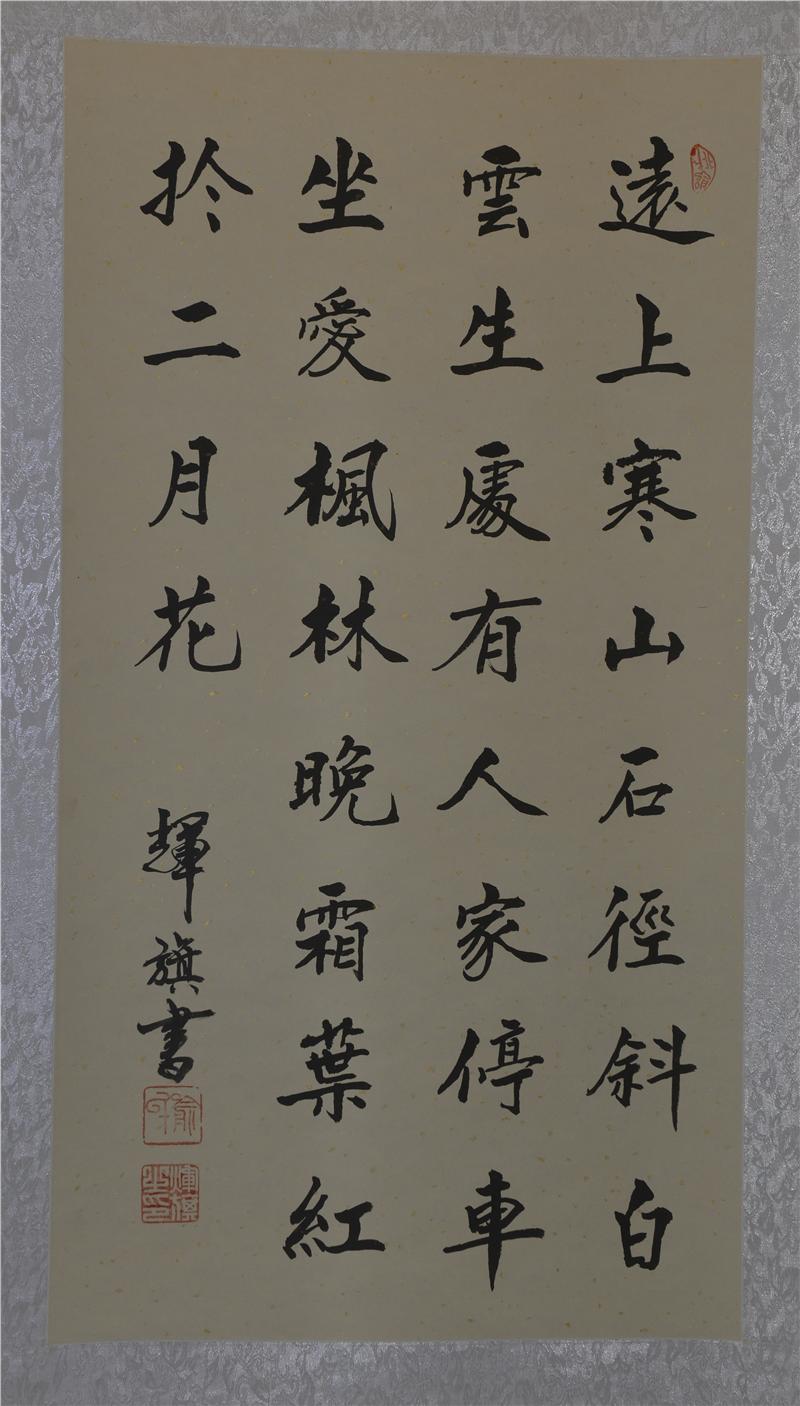 遠上寒山石徑斜白
雲生處有人家停車
坐愛楓林晚霜葉紅
於二月花
輝旗書